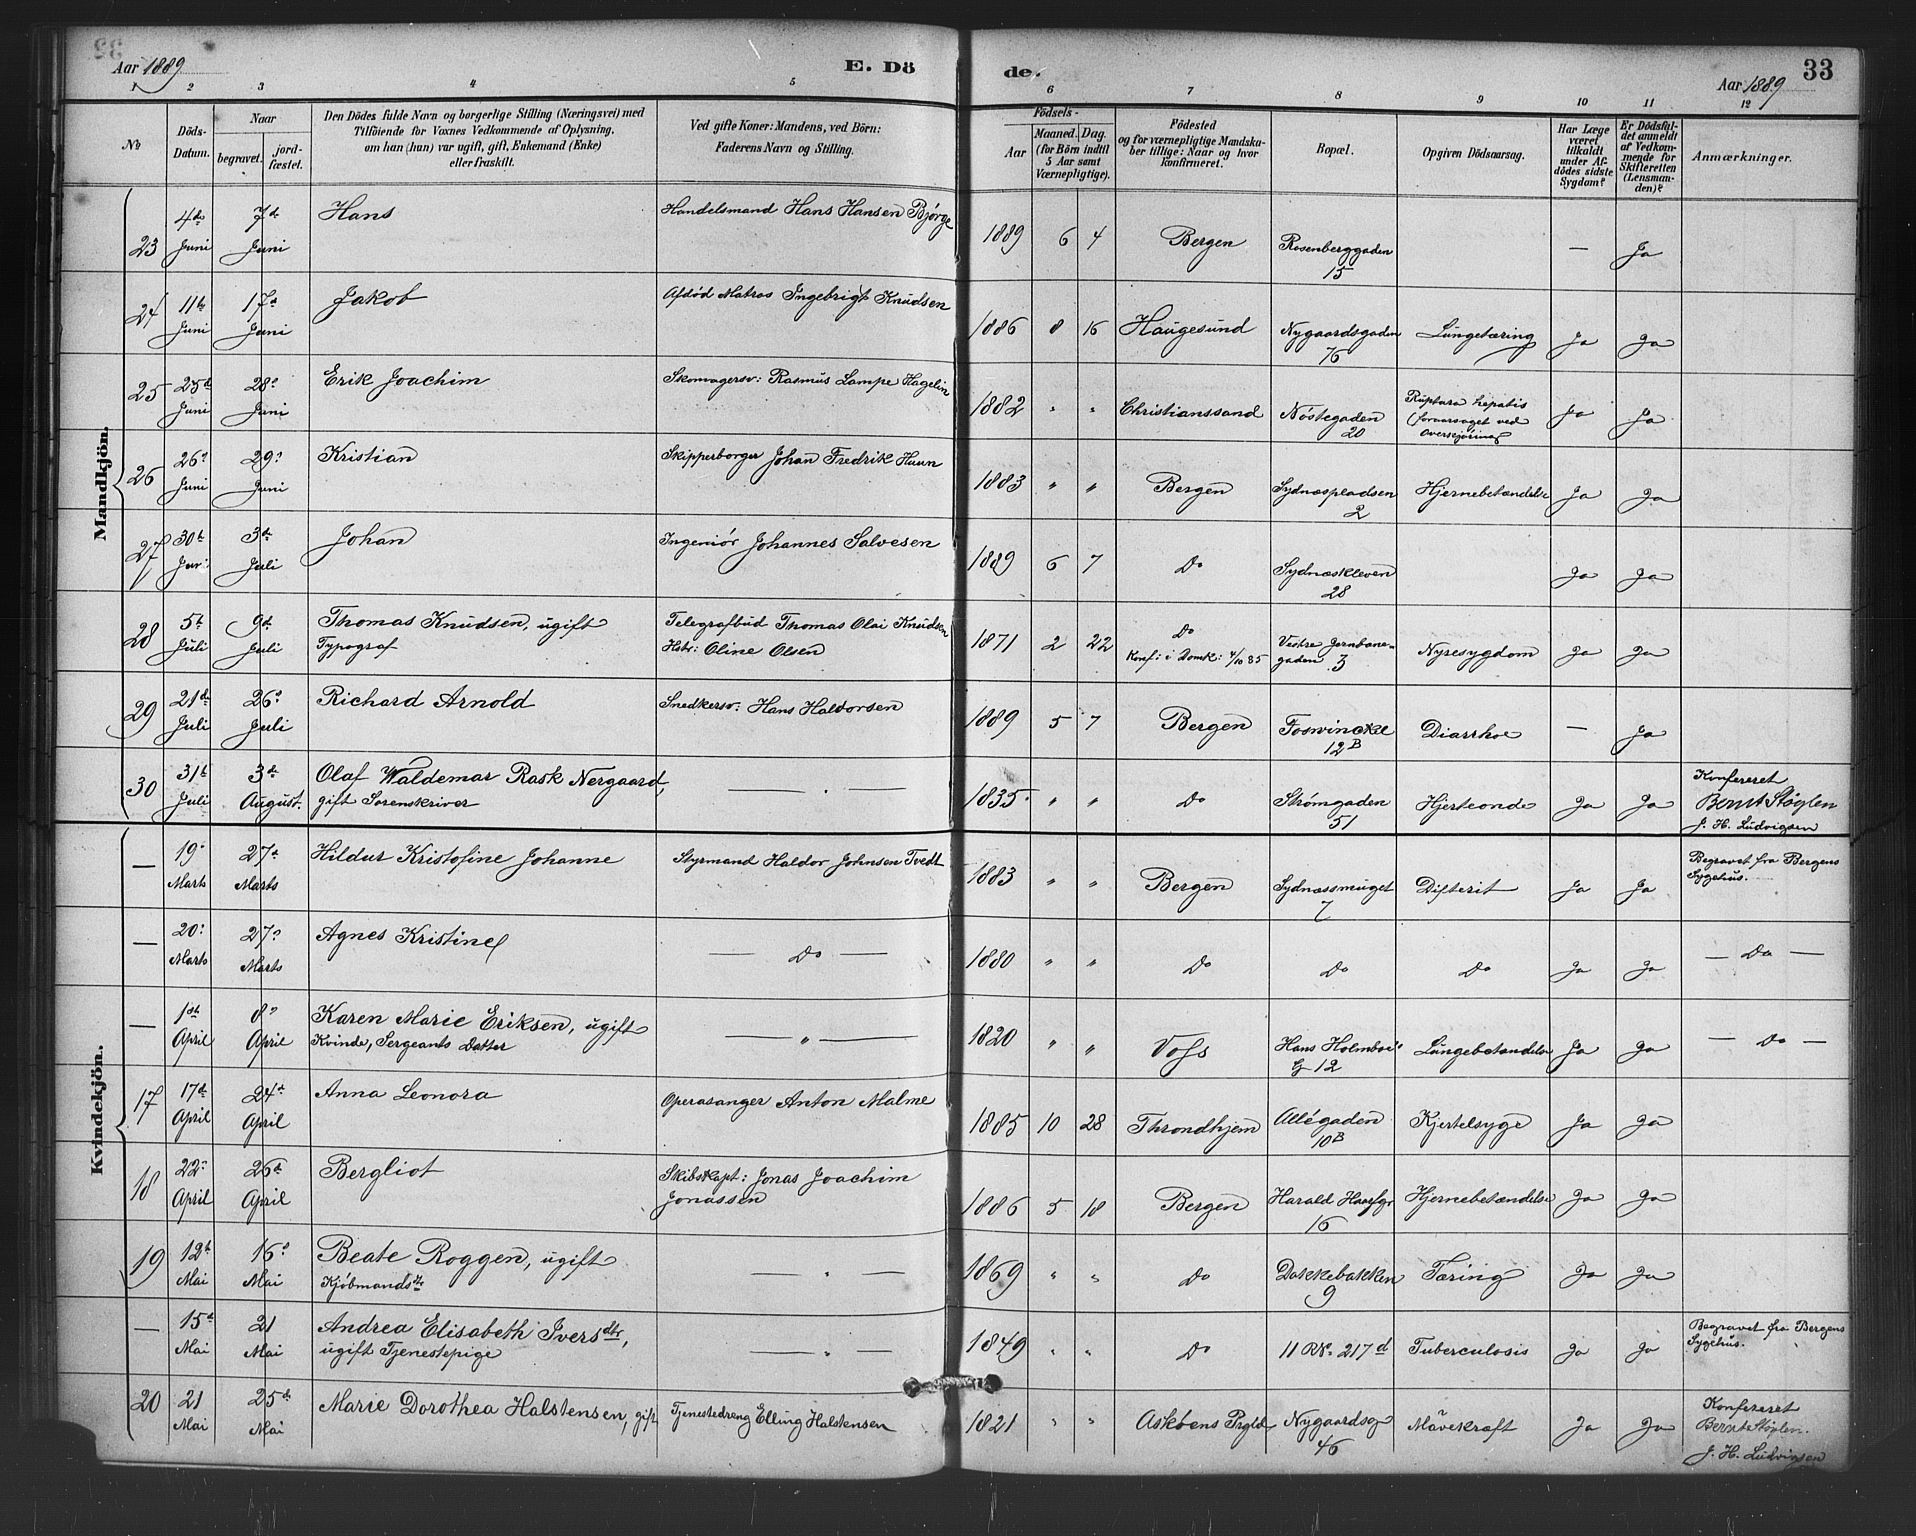 Aar 1889
E. Dö
de.
Aar 1889
33
1 2 3 4 5 6 7 8 9 10 11 12
No
Döds-Datum.
Naar
begravet.
jordfæstet.
Den Dödes fulde Navn og borgerlige Stilling (Næringsvei) med
Tilföiende for Voxnes Vedkommende af Oplysning,
om han (hun) var ugift, gift, Enkemand (Enke)
eller fraskilt.
Ved gifte Koner: Mandens, ved Börn:
Faderens Navn og Stilling.
Födsels-
Aar
Maaned. Dag.
(for Börn indtil
5 Aar samt
Værnepligtige).
Födested
og for værnepligtige Mandskaber tillige: Naar og hvor
konfirmeret.
Bopæl.
Opgiven Dödsaarsag.
Har Læge
været
tilkaldt
under Afdödes sidste
Sygdom?
Er Dödsfaldet anmeldt
af Vedkommende for
Skifteretten
(Lensmanden)?
Anmærkninger.
Mandkjön.
23 4de Juni 7de Juni Hans Handelsmand Hans Hansen Bjørge 1889 6 4 Bergen Rosenberggaden 15 — Ja
24 11te Juni 17de Juni Jakob Afdød Matros Ingebrigt Knudsen 1886 8 16 Haugesund Nygaardsgaden 76 Lungetæring Ja Ja
25 25de Juni 28de Juni Erik Joachim Skomagersv: Rasmus Lampe Hagelin 1882 " " Christianssand Nöstegaden 20 Ruptura hepatis (foraarsaget ved Overkjøring) Ja Ja
26 26de Juni 29de Juni Kristian Skipperborger Johan Fredrik Huun 1883 " " Bergen Sydnæspladsen 2 Hjernebetændelse Ja Ja
27 30te Jun: 3de Juli Johan Ingeniør Johannes Salvesen 1889 6 7 Do Sydnæskleven 28 Ja Ja
28 5te Juli 9de Juli Thomas Knudsen, ugift Typograf Telegrafbud Thomas Olai Knudsen Hstr: Oline Olsen 1871 2 22 Do Konf: i Domk: 4/10 85 Vestre Jernbanegaden 3 Nyresygdom Ja Ja
29 21de Juli 26de Juli Richard Arnold Snedkersv: Hans Haldorsen 1889 5 7 Bergen Foswinckel 12B Diarrhoe — Ja
30 31te Juli 3de August. Olaf Waldemar Rask Nergaard, gift Sorenskriver — " — 1835 " " Do Strømgaden 51 Hjerteonde Ja Ja Konfereret Bernt Støylen J. H. Ludvigsen
Kvindekjön.
— 19de Marts 27de Marts Hildur Kristofine Johanne Styrmand Haldor Johnsen Tvedt 1883 " " Bergen Sydnæssmuget 7 Difterit Ja Ja Begravet fra Bergens Sygehus.
— 20de Marts 27de Marts Agnes Kristine — Do — 1880 " " Do Do Do Ja Ja — Do —
— 1ste April 8de April Karen Marie Eriksen, ugift Kvinde, Sergeants Datter — " — 1820 " " Voss Hans Holmboes G 12 Lungebetændelse Ja Ja — Do —
17 17de April 24de April Anna Leonora Operasanger Anton Malme 1885 10 28 Throndhjem Allégaden 10B Kjertelsyge Ja Ja
18 22de April 26de April Bergliot Skibskapt: Jonas Joachim Jonassen 1886 5 18 Bergen Harald Haarfgr 16 Hjernebetændelse Ja Ja
19 12te Mai 16de Mai Beate Roggen, ugift Kjöbmandsdtr — " — 1869 " " Do Dokkebakken 9 Tæring Ja Ja
— 15de Mai 21 Mai Andrea Elisabeth Iversdtr, ugift Tjenestepige — " — 1849 " " Do 11 RNo 217d Tuberculosis Ja Ja Begravet fra Bergens Sygehus.
20 21 Mai 25de Mai Marie Dorothea Halstensen, gift Tjenestedreng Elling Halstensen 1821 " " Askøens Prgld Nygaardsg 46 Mavekræft Ja Ja Konfereret Bernt Støylen. J. H. Ludvigsen